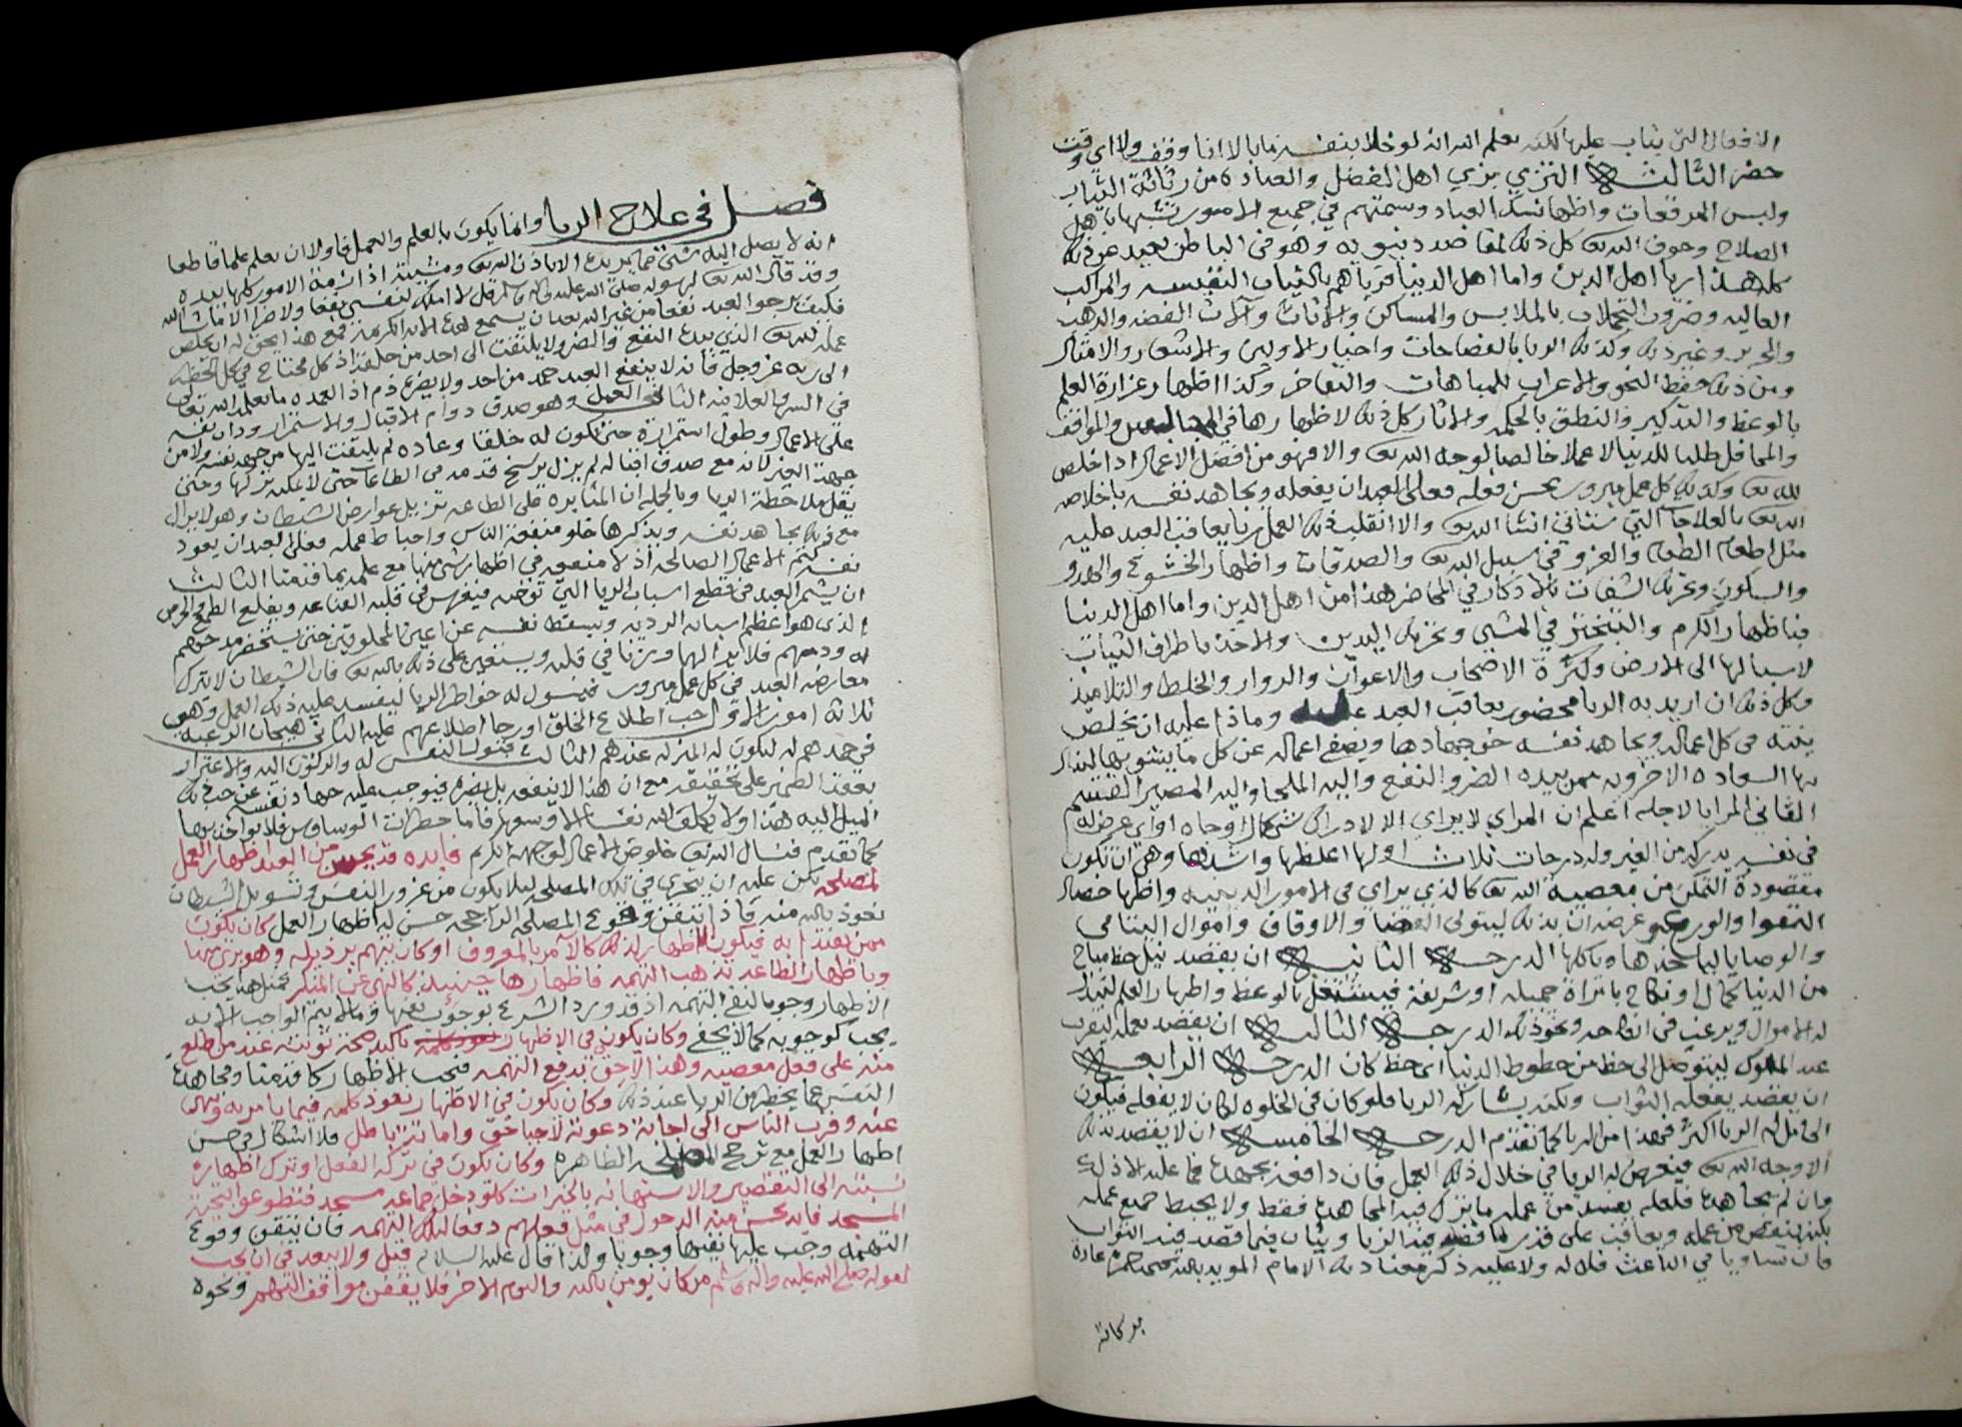 الافعال التي يثاب عليها لكنه يعلم الله انه لو خلا بنفسه ما بالا انا وقف ولا اي وقت
حضر الثالث التزي بزي اهل الفضل والعباده من رثاثة الثياب
ولبس المرقعات واظهار نسك العباد وسمتهم في جميع الامور تشبها باهل
الصلاح وخوف الله تع كل ذلك لمقاصد دنيويه وهو في الباطن بعيد عن ذلك
كله هذا رياء اهل الدين واما اهل الدنيا فرياهم بالثياب النفيسه والمراكب
العاليه وضروب التجملات بالملابس والمساكن والاثاث وآلات الفضه والذهب
والحرير وغير ذلك وكذلك الريا بالفصاحات واخبار الاولين والاشعار والامثال
ومن ذلك حفظ النحو والاعراب للمباهات والتفاخر وكذا اظهار غزارة العلم
بالوعظ والتذكير والنطق بالحكمه والاثار كل ذلك لاظهارها في المجالس والمواقف
والمحافل طلبا للدنيا لا عملا خالصا لوجه الله تع والا فهو من افضل الاعمال اذا خلص
لله تع وكذلك كل عمل مبرور يحسن فعله فعلى العبد ان يفعله ويجاهد نفسه باخلاص
الله تع بالعلاجات التي ستأتي انشا الله تع والا انقلب ذلك العمل ريا يعاقب العبد عليه
مثل اطعام الطعام والغزو في سبيل الله تع والصدقات واظهار الخشوع والهدو
والسكون وتحريك الشفات بالاذكار في المحاضر هذا من اهل الدين واما اهل الدنيا
فباظهار الكرم والتبختر في المشي وتحريك اليدين والاخذ باطراف الثياب
لاسبالها الى الارض وكثرة الاصحاب والاعوان والزوار والخلطا والتلاميذ
وكل ذلك ان اريد به الريا محضور يعاقب العبد عليه وماذا عليه ان يخلص
نيته في كل اعماله ويجاهد نفسه حق جهادها ويصفي اعماله عن كل ما يشوبها لينال
بها السعاده الاخرويه ممن بيده الضر والنفع واليه الملجا واليه المصير القسم
الثاني المرايا لاجله اعلم ان المراي لا يراي الا لادراك شي كمال او جاه او اي غرض له
في نفسه يدركه من الغير وله درجات ثلاث اولها اغلظها واشدها وهي ان تكون
مقصودة التمكن من معصية الله تع كالذي يراي في الامور الدينيه واظهار خصال
التقوا والورع وغرضه ان بذلك ليتولى القضا والاوقاف واموال اليتامى
والوصايا لياخذها وياكلها الدرجه الثانيه ان يقصد نيل حظ مباح
من الدنيا كمال او نكاح بامرأة جميله او شريفه فيشتغل بالوعظ واظهار العلم لتبذل
له الاموال ويرغب في انكاحه ونحو ذلك الدرجه الثالثه ان يقصد بعمله ليقرب
عند الملوك ليتوصل الى حظ من حظوظ الدنيا اي حظ كان الدرجه الرابعه
ان يقصد بفعله الثواب ولكنه يشاركه الريا فلو كان في الخلوه لكان لا يفعله فيكون
الحامل له الريا اكثر فهذا من الريا كما تقدم الدرجه الخامسه ان لا يقصد بذلك
الا وجه الله تع فيعرض له الريا في خلال ذلك العمل فان دافعه بجهده فما عليه الا ذلك
وان لم يجاهده فلعله يفسد من عمله ما ترك فيه المجاهده فقط ولا يحبط جميع عمله
لكنه ينقص من عمله ويعاقب على قدر ما قصد فيه الريا ويثاب فيما قصد فيه الثواب
فان تساويا في الباعث فلا له ولا عليه ذكر معنا ذلك الامام المويد بالله يحيى بن حمزه عادة
بركاته
فصل في علاج الريا وانما يكون بالعلم والعمل فاولا ان يعلم علما قاطعا
انه لا يصل اليه شي مما يريده الا باذن الله تع ومشيئته اذ ازمة الامور كلها بيده
وقد قال الله تع لرسوله صلى الله عليه واله وسلم قل لا املك لنفسي نفعا ولا ضرا الا ما شا الله
فكيف يرجو العبد نفعا من غير الله بعد ان يسمع هذه الايه الكريمه فمع هذا يحق له ان يخلص
عمله لله تع الذي بيده النفع والضر ولا يلتفت الى احد من خلقه اذ كل محتاج في كل لحظه
الى ربه عز وجل فانه لا ينفع العبد حمد من احد ولا يضره ذم اذ العمده ما يعلمه الله تعالى
في السر والعلانيه الثاني العمل وهو صدق دوام الاقبال والاستمرار ودأب نفسه
على الاعمال وطول استمراره حتى تكون له خلقا وعاده لم يلتفت اليها من جهة نفسه ولا من
جهة الغير لانه مع صدق اقباله لم يزل يرسخ قدمه في الطاعات حتى لا يمكنه تركها وحتى
يقل ملاحظة الريا وبالجمله ان المثابره على الطاعه تزيل عوارض الشيطان وهو لا يزال
مع ذلك يجاهد نفسه ويذكرها خلو منفعة الناس واحباط عمله فعلى العبد ان يعود
نفسه كتم الاعمال الصالحه اذ لا منفعه في اظهار شي منها مع علمه بما قدمنا الثالث
ان يشمر العبد في قطع اسباب الريا التي توضه فيغرس في قلبه القناعه ويقلع الطمع والحرص
الذي هو اعظم اسبابه الرديه ويسقط نفسه عن اعين المخلوقين حتى يستحقر مدحهم
له وذمهم فلا يرا لهما وزنا في قلبه ويستعين على ذلك بالله تع فان الشيطان لا يترك
معارضة العبد في كل عمل مبرور فيسول له خواطر الريا ليفسد عليه ذلك العمل وهي
ثلاثة امور الاول حب اطلاع الخلق او رجا اطلاعهم عليه الثاني هيجان الرغبه
في حمدهم له لتكون له المنزله عندهم الثالث قبول النفس له والركون اليه والاغترار
بعقد الضمير على تحقيقه مع ان هذا لا ينفعه بل يضره فيوجب عليه جهاد نفسه عن حب ذلك
الميل اليه هذا ولا يكلف الله نفسا الا وسعها فاما خطرات الوساوس فلا يواخذ بها
كما تقدم فنسال الله تع خلوص الاعمال لوجهه الكريم فايده قد يحسن من العبد اظهار العمل
لمصلحه لكن عليه ان يتحرى في تلك المصلحه ليلا يكون من غرور النفس وتسويل الشيطان
نعوذ بالله منه فاذا تيقن وقوع المصلحه الراجحه حسن له اظهار العمل كان يكون
ممن يقتدا به فيكون اظهاره لذلك كالامر بالمعروف او كان يتهم برذيله وهو بري منها
وباظهار الطاعه تذهب التهمه فاظهارها حينئذ كالنهي عن المنكر فمثل هذا يجب
الاظهار وجوبا لنفي التهمه اذ قد ورد الشرع بوجوب نفيها وما لا يتم الواجب الا به
يجب كوجوبه كما لا يخفى وكان يكون في الاظهار تاكيد صحة توبته عند من اطلع
منه على فعل معصيه وهذا لاحق بدفع التهمه فيجب الاظهار كما قدمنا ومجاهدة
النفس عما يخطر من الريا عند ذلك وكان يكون في الاظهار نفوذ كلمه فيما يامر به وينهى
عنه وقرب الناس الى اجابة دعوته لاحيا حق واماتة باطل فلا اشكال في حسن
اظهار العمل مع ترجح المصلحه الظاهره وكان يكون في ترك الفعل او ترك اظهاره
نسبته الى التقصير والاستهانه بالخيرات كلو دخل جماعه مسجد فتطوعوا بتحية
المسجد فانه يحسن منه الدخول في مثل فعلهم دفعا لتلك التهمه فان تيقن وقوع
التهمه وجب عليه نفيها وجوبا ولذا قال عليه السلام قيل ولا يبعد في ان يجب
لقوله صلى الله عليه واله وسلم من كان يومن بالله واليوم الاخر فلا يقفن مواقف التهم ونحوه